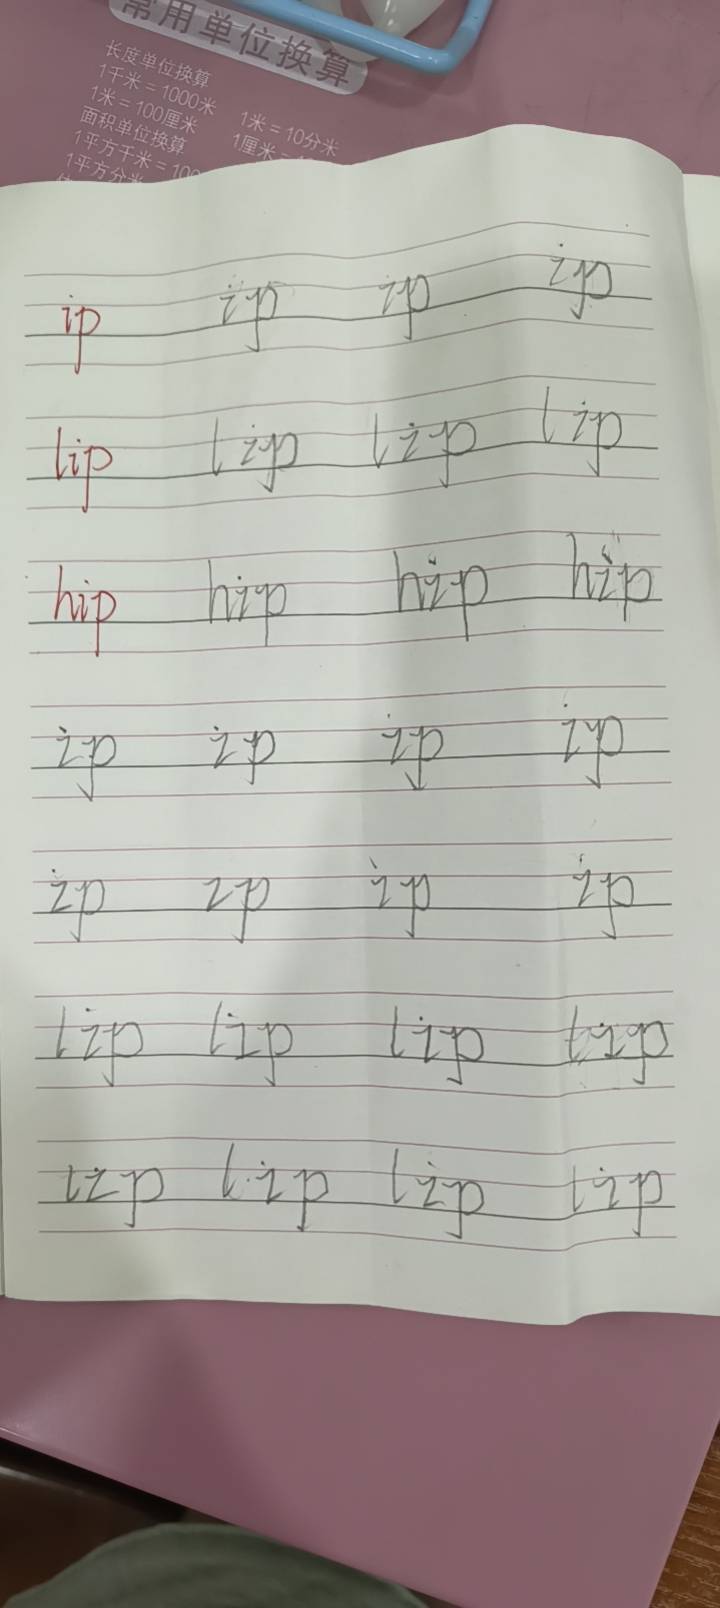 常用单位换算
长度单位换算
1千米=1000米 1米=10分米
1米=100厘米 1厘米=
面积单位换算
1平方千米=100
1平方分米
ip ip ip ip
lip lip lip lip
hip hip hip hip
ip ip ip ip
ip ip ip ip
lip lip lip lip
lip lip lip lip